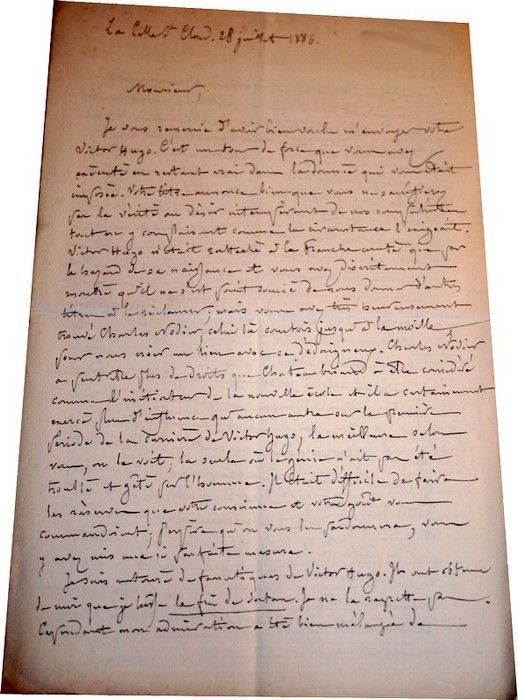 La Celle St Cloud. 28 juillet 1886.
Monsieur,
Je vous remercie d'avoir bien voulu m'envoyer votre
Victor Hugo. C'est un tour de force que vous avez
exécuté en restant vrai dans la donnée qui vous était
imposée. Votre titre annonce bien que vous ne sacrifierez
pas la vérité au désir intempérant de nos compatriotes
tout en y complaisant comme la circonstance l'exigeait.
Victor Hugo n'était rattaché à la Franche comté que par
le hasard de sa naissance et vous avez discrètement
montré qu'il ne s'est point soucié de nous donner d'autres
titres à le réclamer; mais vous avez très heureusement
trouvé Charles Nodier, celui là comtois jusqu'à la moille
pour nous créer un lien avec ce dédaigneux. Charles Nodier
a peut être plus de droits que Chateaubriand à être considéré
comme l'initiateur de la nouvelle école et il a certainement
exercé plus d'influence qu'aucun autre sur la première
période de la carrière de Victor Hugo, la meilleure selon
vous, on le voit; la seule où le génie n'ait pas été
troublé et gâté par l'homme. Il était difficile de faire
les réserves que votre conscience et votre goût vous
commandaient; j'espère qu'on vous les pardonnera, vous
y avez mis une si parfaite mesure.
Je suis entouré de fanatiques de Victor Hugo. Ils ont obtenu
de moi que je lusse la fin de Satan. Je ne le regrette pas.
Cependant mon admiration a été bien mélangée de